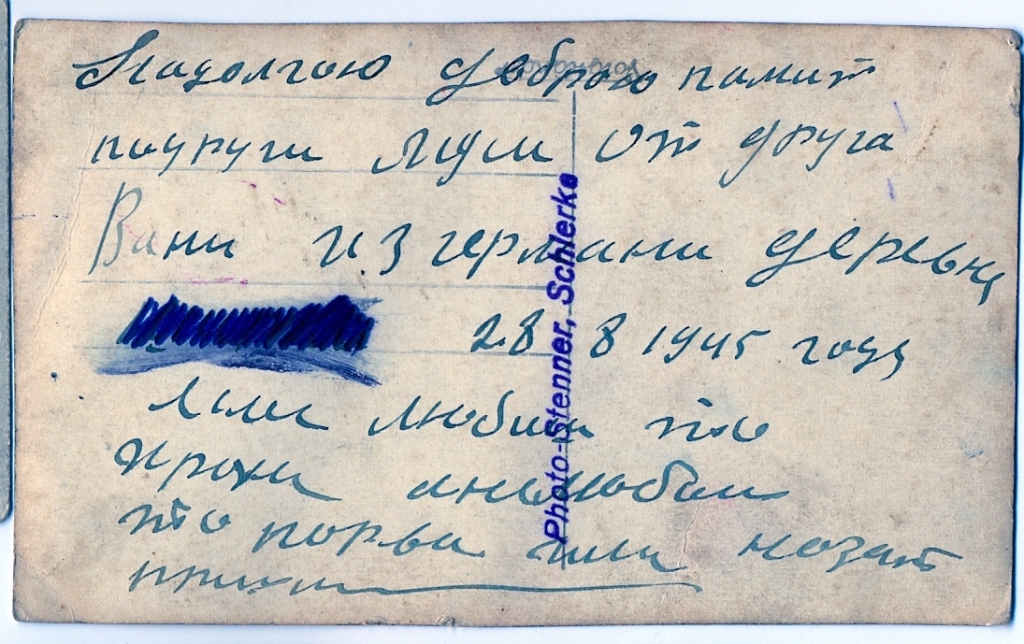 Надолгою доброю памит
подруги Муси От друга
Вани из германи деревня
28 8 1945 году
люби то
храни
то порви или назат
пришли
Photo-Stenner, Schlerke